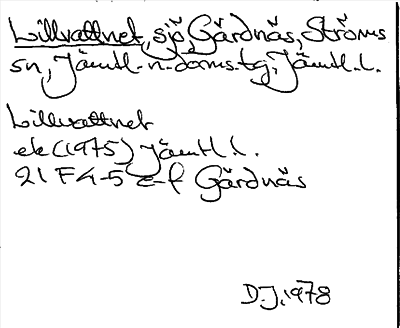 Lillvattnet, sjö, Gärdnäs, Ströms
sn, Jämtl. n. doms. tg, Jämtl. l.
Lillvattnet
ek (1975) Jämtl l.
21 F 4-5 e-f Gärdnäs
D.J. 1978